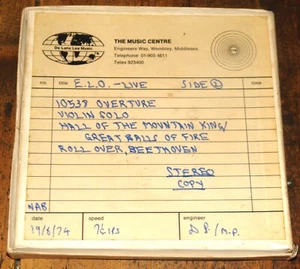 De Lane Lea Music
THE MUSIC CENTRE
Engineers Way, Wembley, Middlesex.
Telephone 01-903 4611
Telex 923400
no. title E.L.O. — LIVE SIDE ②
10538 OVERTURE
VIOLIN SOLO
HALL OF THE MOUNTAIN KING/
GREAT BALLS OF FIRE
ROLL OVER, BEETHOVEN
STEREO
COPY
NAB
date speed engineer
19/6/74 7½ IPS DP/M.P.